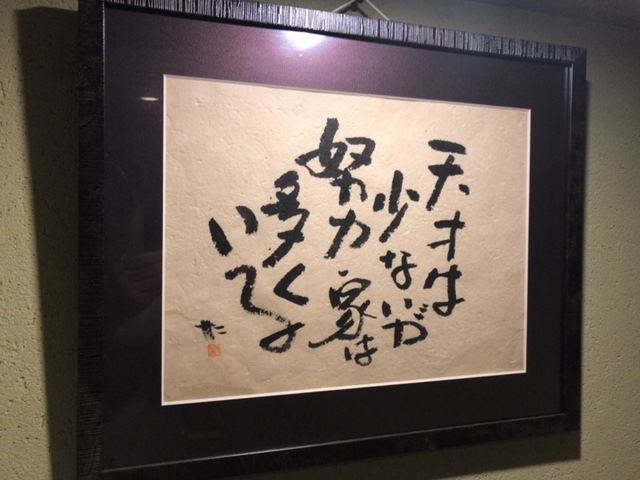 天才は
少ないが
努力家は
多く
いてよ